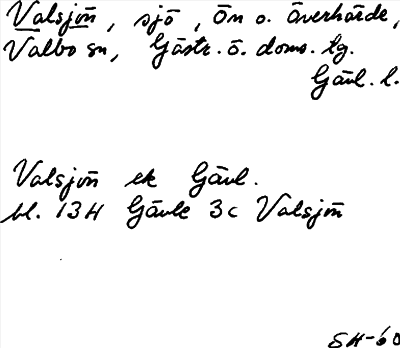 Valsjön, sjö, Ön o. Överhärde,
Valbo sn, Gästr. ö. doms. tg.
Gävl. l.
Valsjön ek Gävl.
bl. 13H Gävle 3c Valsjön
SH-60